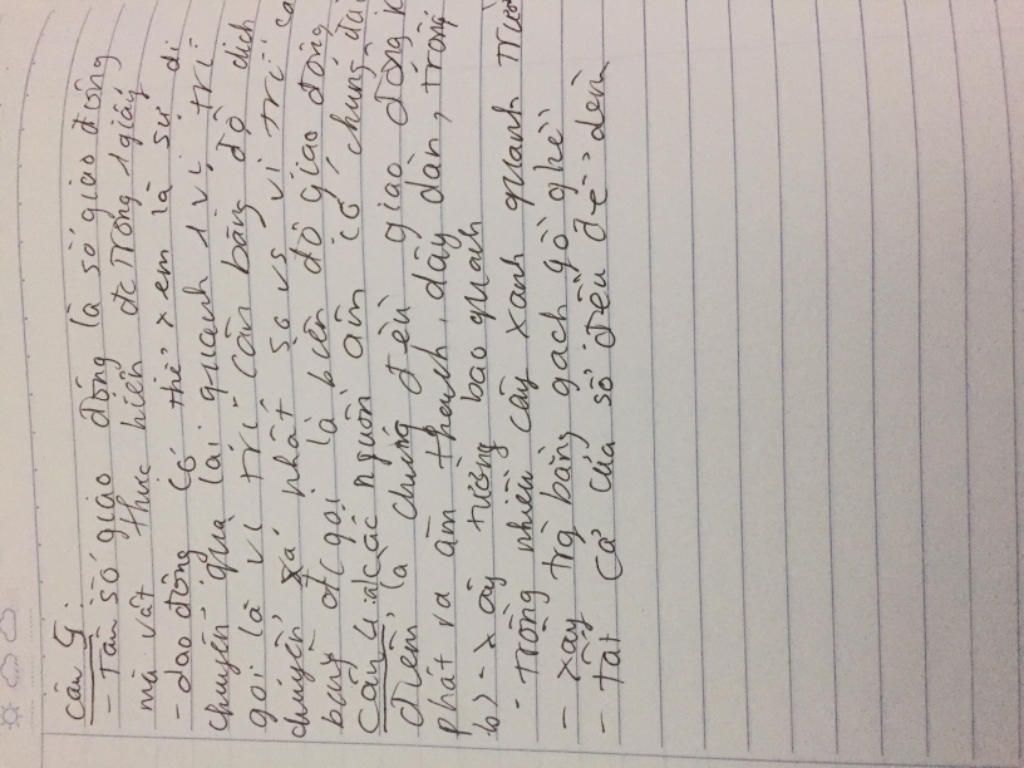 câu 5:
- Tần số giao động là số giao động
mà vật thực hiện đc trong 1 giây
- dao động có thể xem là sự di
chuyển qua lại quanh 1 vị trí
gọi là vị trí cân bằng độ dịch
chuyển xá nhất so vs vị trí câ
bằng đc gọi là biên độ giao động
Câu 4: a) các nguồn âm có chung đặ
điểm là chúng đều giao động k
phát ra âm thanh, dây đàn, trống
b) - xây tường bao quanh
- trồng nhiều cây xanh quanh trườ
- xây trg bằng gạch gồ ghề
- tất cả cửa sổ đều đc đèn